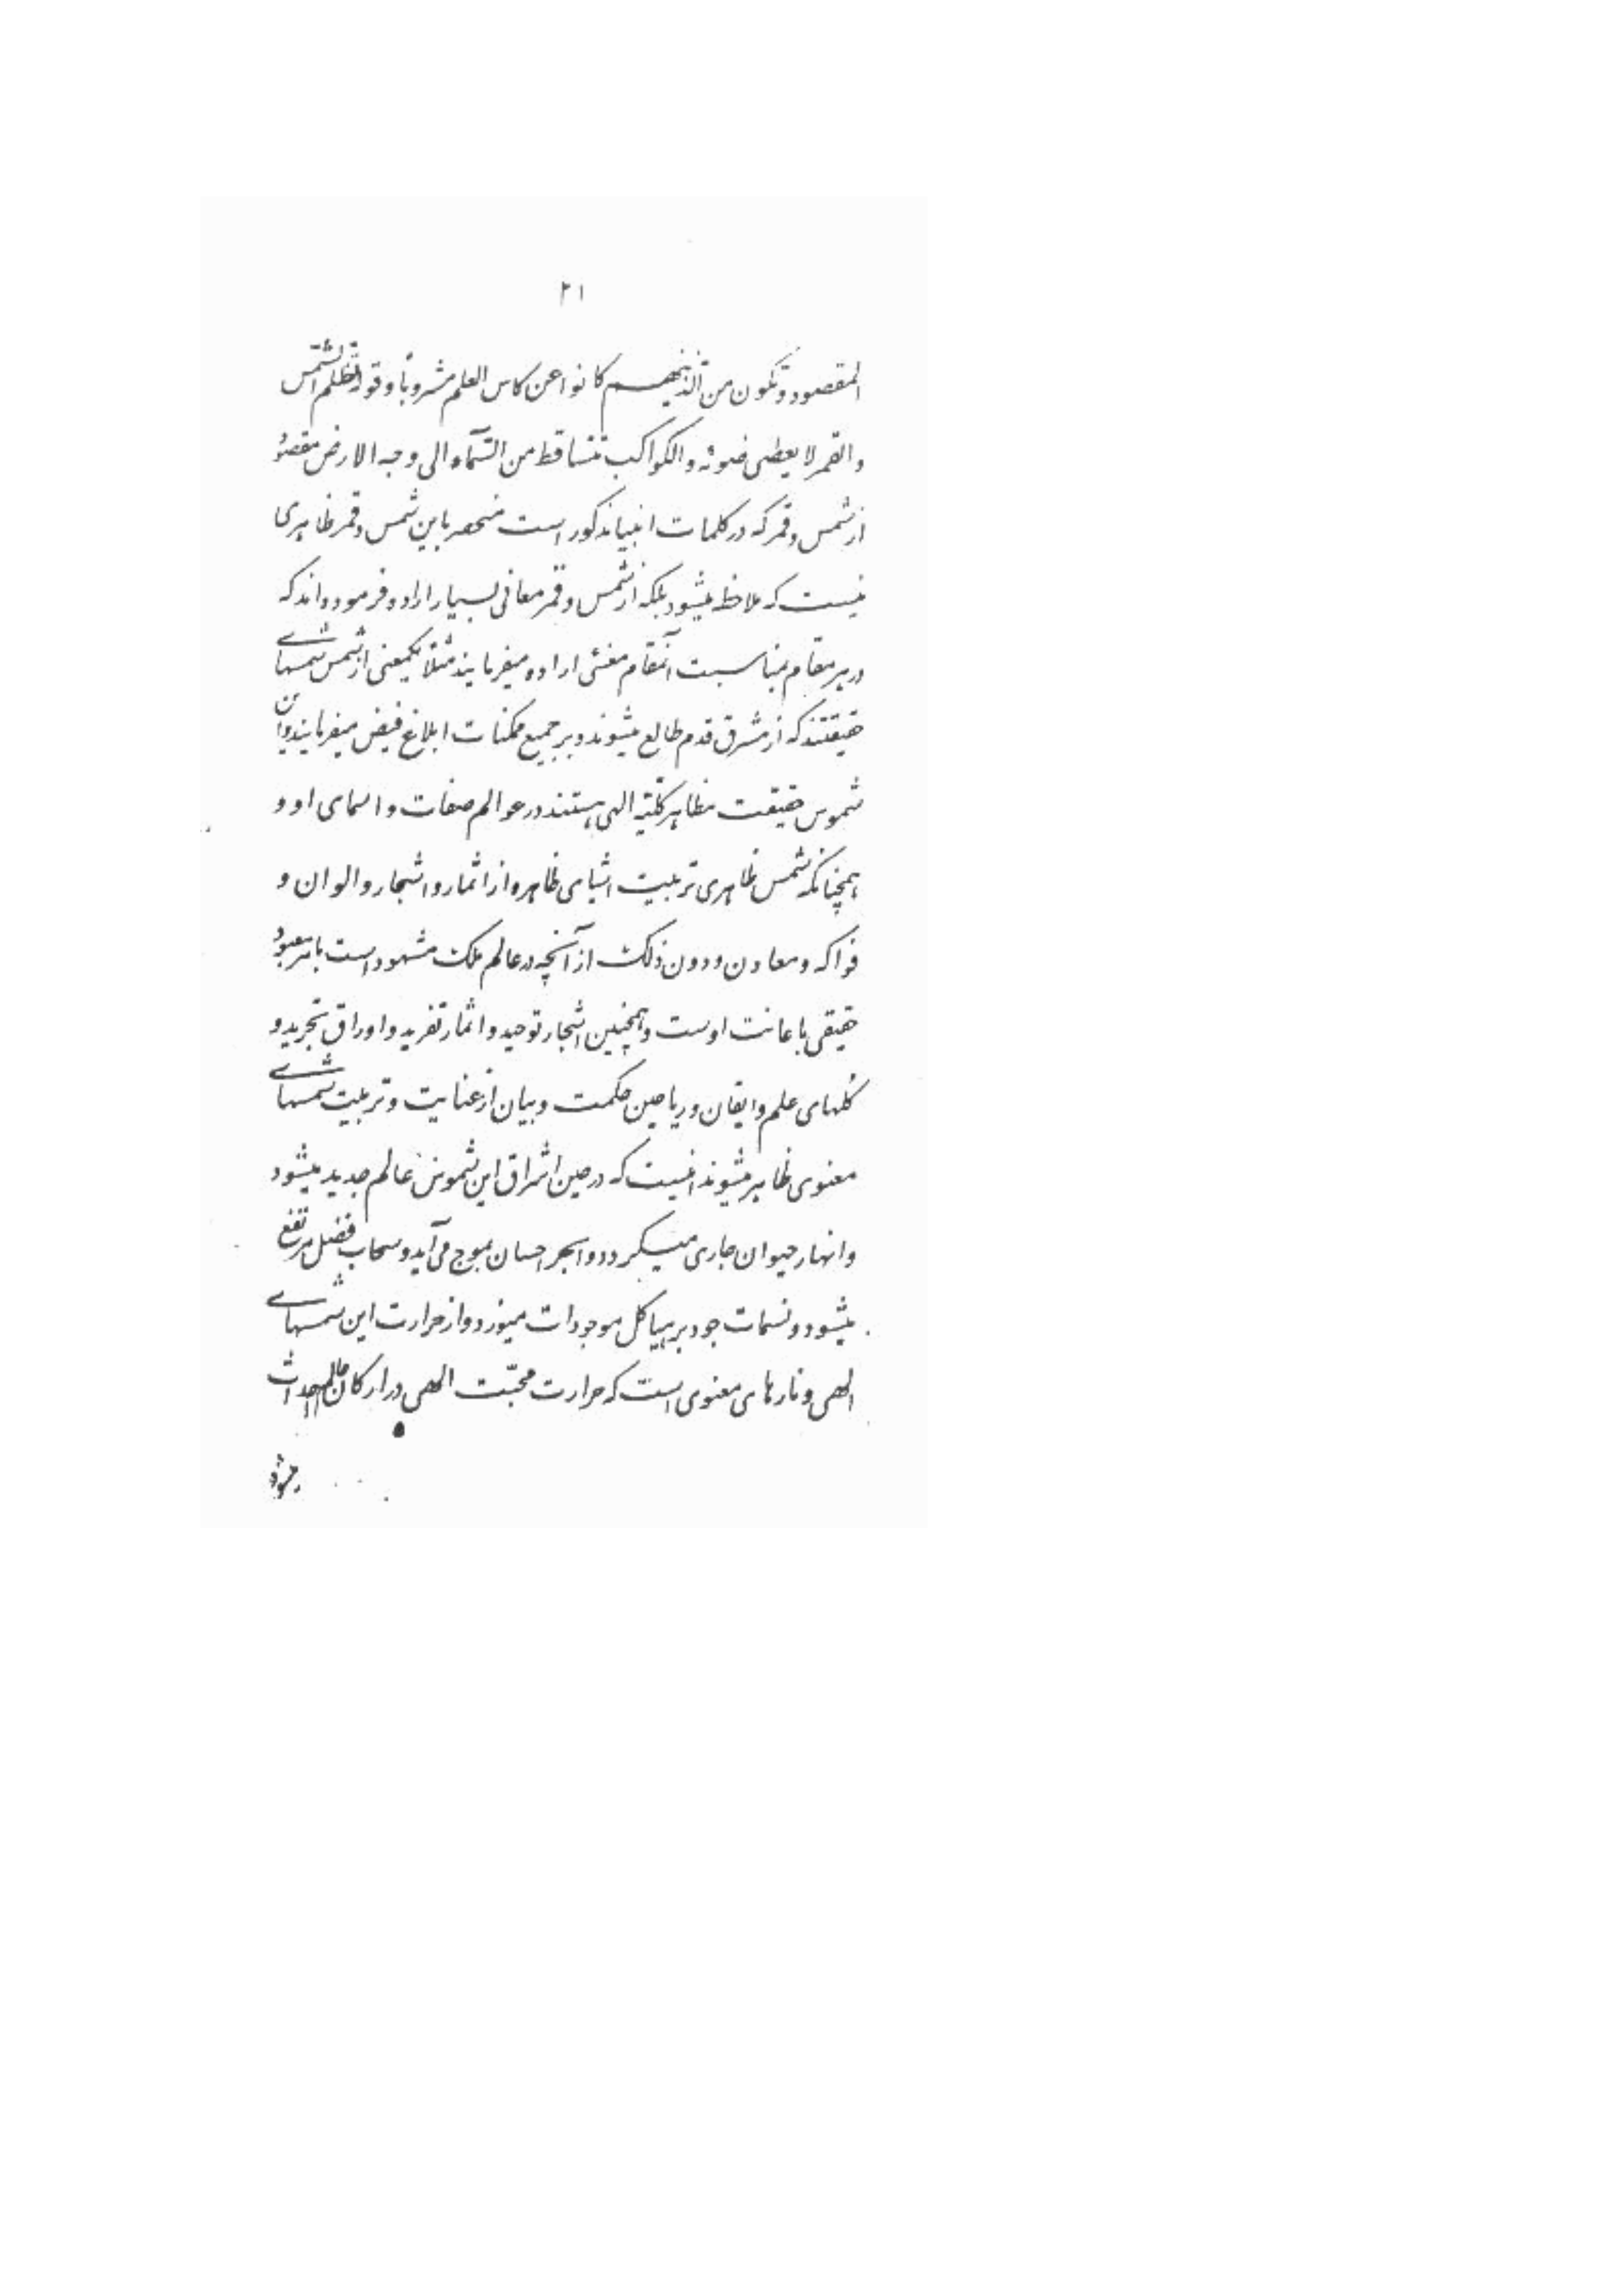 ۲۱
المقصود و تکون من الّذینهم کانوا عن کاس العلم مشروباً و قوله تظلم الشّمس
و القمر لا یعطی ضوئه و الکواکب تتساقط من السّمآء الی وجه الارض مقصود
از شمس و قمر که در کلمات انبیا مذکور است منحصر باین شمس و قمر ظاهری
نیست که ملاحظه میشود بلکه از شمس و قمر معانی بسیار اراده فرموده‌اند که
در هر مقام بمناسبت آنمقام معنئی اراده میفرمایند مثلاً یکمعنی از شمس شمسهای
حقیقتند که از مشرق قدم طالع میشوند و بر جمیع ممکنات ابلاغ فیض میفرمایند و این
شموس حقیقت مظاهر کلّیّه الهی هستند در عوالم صفات و اسمای او و
همچنانکه شمس ظاهری تربیت اشیای ظاهره از اثمار و اشجار و الوان و
فواکه و معادن و دون ذلک از آنچه در عالم ملک مشهود است بامر معبود
حقیقی باعانت اوست و همچنین اشجار توحید و اثمار تفرید و اوراق تجرید و
گلهای علم و ایقان و ریاحین حکمت و بیان از عنایت و تربیت شمسهای
معنوی ظاهر میشوند اینست که در حین اشراق این شموس عالم جدید میشود
و انهار حیوان جاری میگردد و ابحر احسان بموج می‌آید و سحاب فضل مرتفع
میشود و نسمات جود بر هیاکل موجودات میوزد و از حرارت این شمسهای
الهی و نارهای معنوی است که حرارت محبّت الهی در ارکان عالم احداث
میشود